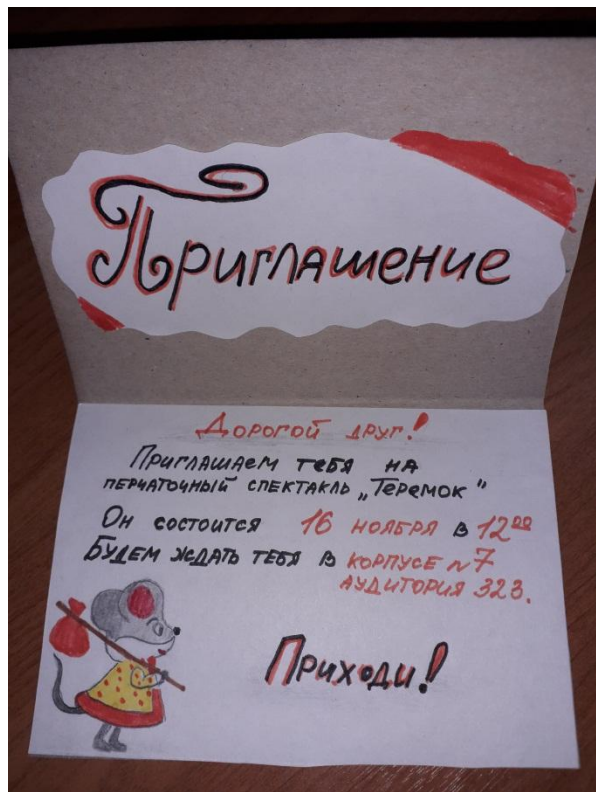 Приглашение
Дорогой друг!
Приглашаем тебя на
перчаточный спектакль „Теремок"
Он состоится 16 ноября в 12⁰⁰
Будем ждать тебя в корпусе №7
аудитория 323.
Приходи!